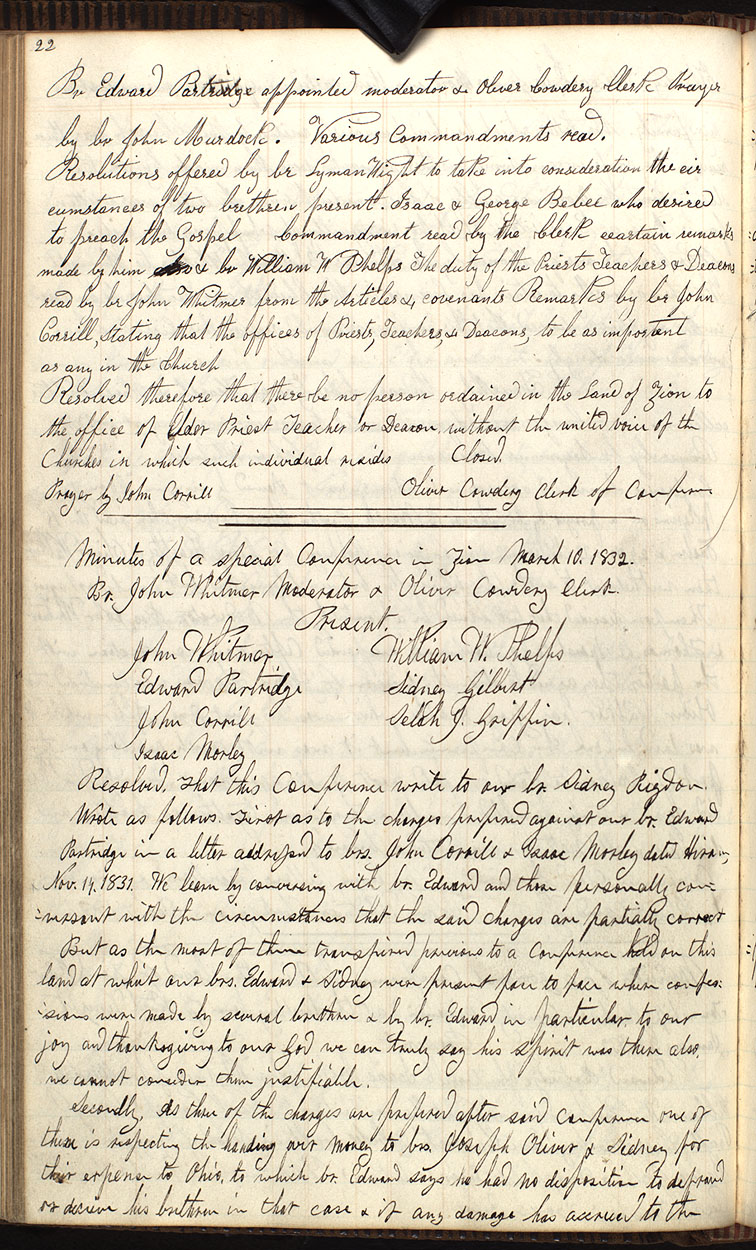 22
Br Edward Partridge appointed moderator & Oliver Cowdery Clerk Prayer
by br John Murdock. Various Commandments read.
Resolutions offered by br Lyman Wight to take into consideration the cir
cumstances of two brethren present. Isaac & George Bebee who desired
to preach the Gospel Commandment read by the Clerk & certain remarks
made by him & br William W Phelps The duty of the Priests Teachers & Deacons
read by br John Whitmer from the Articles & covenants Remarks by br John
Corrill, stating that the offices of Priests, Teachers, & Deacons, to be as important
as any in the Church
Resolved therefore that there be no person ordained in the Land of Zion to
the office of Elder Priest Teacher or Deacon without the united voice of the
Churches in which such individual resides Closed.
Prayer by John Corrill Oliver Cowdery Clerk of Conferen
Minutes of a special Conference in Zion March 10. 1832.
Br. John Whitmer Moderator & Oliver Cowdery Clerk.
Present.
John Whitmer William W. Phelps
Edward Partridge Sidney Gilbert
John Corrill Selah J. Griffin.
Isaac Morley
Resolved, That this Conference write to our br. Sidney Rigdon.
Wrote as follows. First as to the charges prefered against our br. Edward
Partridge in a letter addressed to brs. John Corrill & Isaac Morley dated Hiram,
Nov. 14. 1831. We learn by conversing with br. Edward and those personally con=
=versant with the circumstances that the said charges are partially correct
But as the most of them transpired previous to a Conference held on this
land at which our brs. Edward & Sidney were present face to face where confes=
=sions were made by several brethren & by br. Edward in particular to our
joy and thanksgiving to our God we can truly say his spirit was there also,
we cannot consider them justifiable.
Secondly, As three of the charges are prefered after said conference one of
these is respecting the handing over money to brs. Joseph Oliver & Sidney for
their expense to Ohio, to which br. Edward says he had no disposition to defraud
or deceive his brethren in that case & if any damage has accrued to the